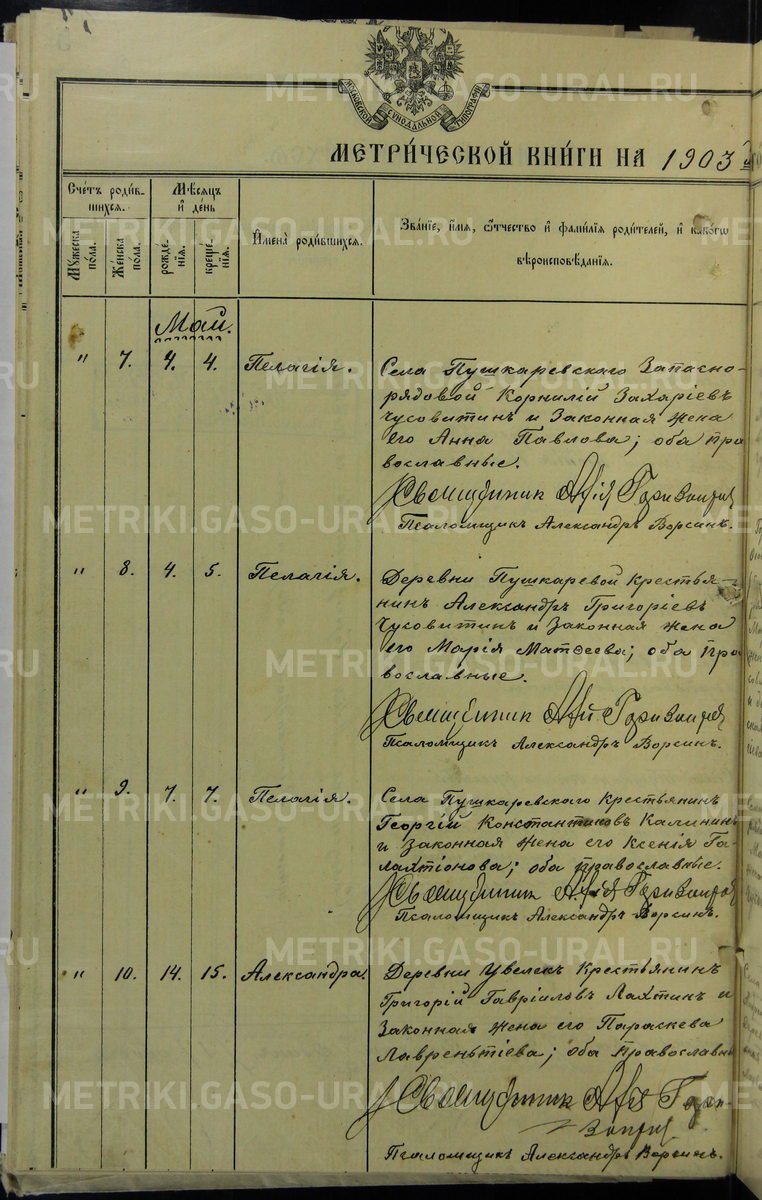 МОСКОВСКОЙ СѴНОДАЛЬНОЙ ТИПОГРАФІИ
МЕТРИ́ЧЕСКОЙ КНИ́ГИ НА 1903
Сче́тъ роди́в-
шихся.
Мѣ́сяцъ
и҆ де́нь
Му́жеска
по́ла.
Же́нска
по́ла.
рожде́-
нїѧ.
креще́-
нїѧ.
И҆мена̀ роди́вшихся.
Зва́нїе, и҆́мѧ, ѻ҆́тчество и҆ фами́лїѧ роди́телей, и҆ како́гѡ
вѣроисповѣ́данїѧ.
Май.
" 7. 4. 4. Пелагія. Села Пушкаревскаго Запасно-
рядовой Корнилій Захаріевъ
Чусовитинъ и Законная жена
его Анна Павлова; оба пра
вославные.
Священник
Псаломщикъ Александръ Ворсинъ.
" 8. 4. 5. Пелагія. Деревни Пушкаревой крестья-
нинъ Александръ Григоріевъ
Чусовитинъ и Законная жена
его Марія Матѳеева; оба пра
вославные.
Священник
Псаломщикъ Александръ Ворсинъ.
" 9. 7. 7. Пелагія. Села Пушкаревскаго Крестьянинъ
Георгій Константиновъ Калининъ
и Законная жена его Ксенія Га-
лахтіонова; оба православные.
Священник
Псаломщикъ Александръ Ворсинъ.
" 10. 14. 15. Александра. Деревни Увелекъ Крестьянинъ
Григорій Гавріиловъ Лахтинъ и
Законная жена его Параскева
Лаврентьіева; оба православны
Священник
Псаломщикъ Александръ Ворсинъ.
METRIKI.GASO-URAL.RU